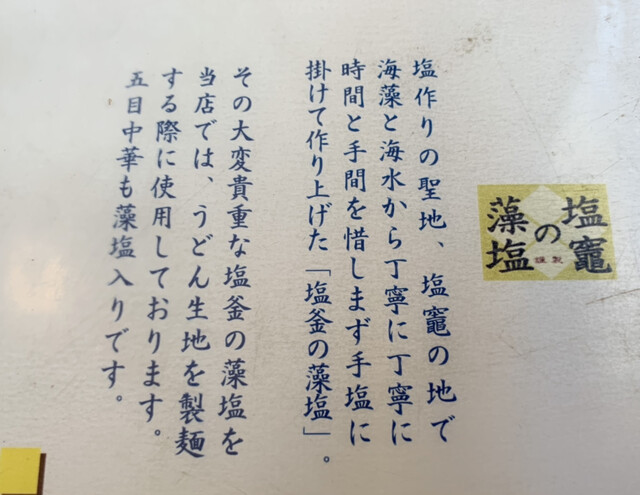 塩竈
の
藻塩
謹製
塩作りの聖地、塩竈の地で
海藻と海水から丁寧に丁寧に
時間と手間を惜しまず手塩に
掛けて作り上げた「塩釜の藻塩」。
その大変貴重な塩釜の藻塩を
当店では、うどん生地を製麺
する際に使用しております。
五目中華も藻塩入りです。